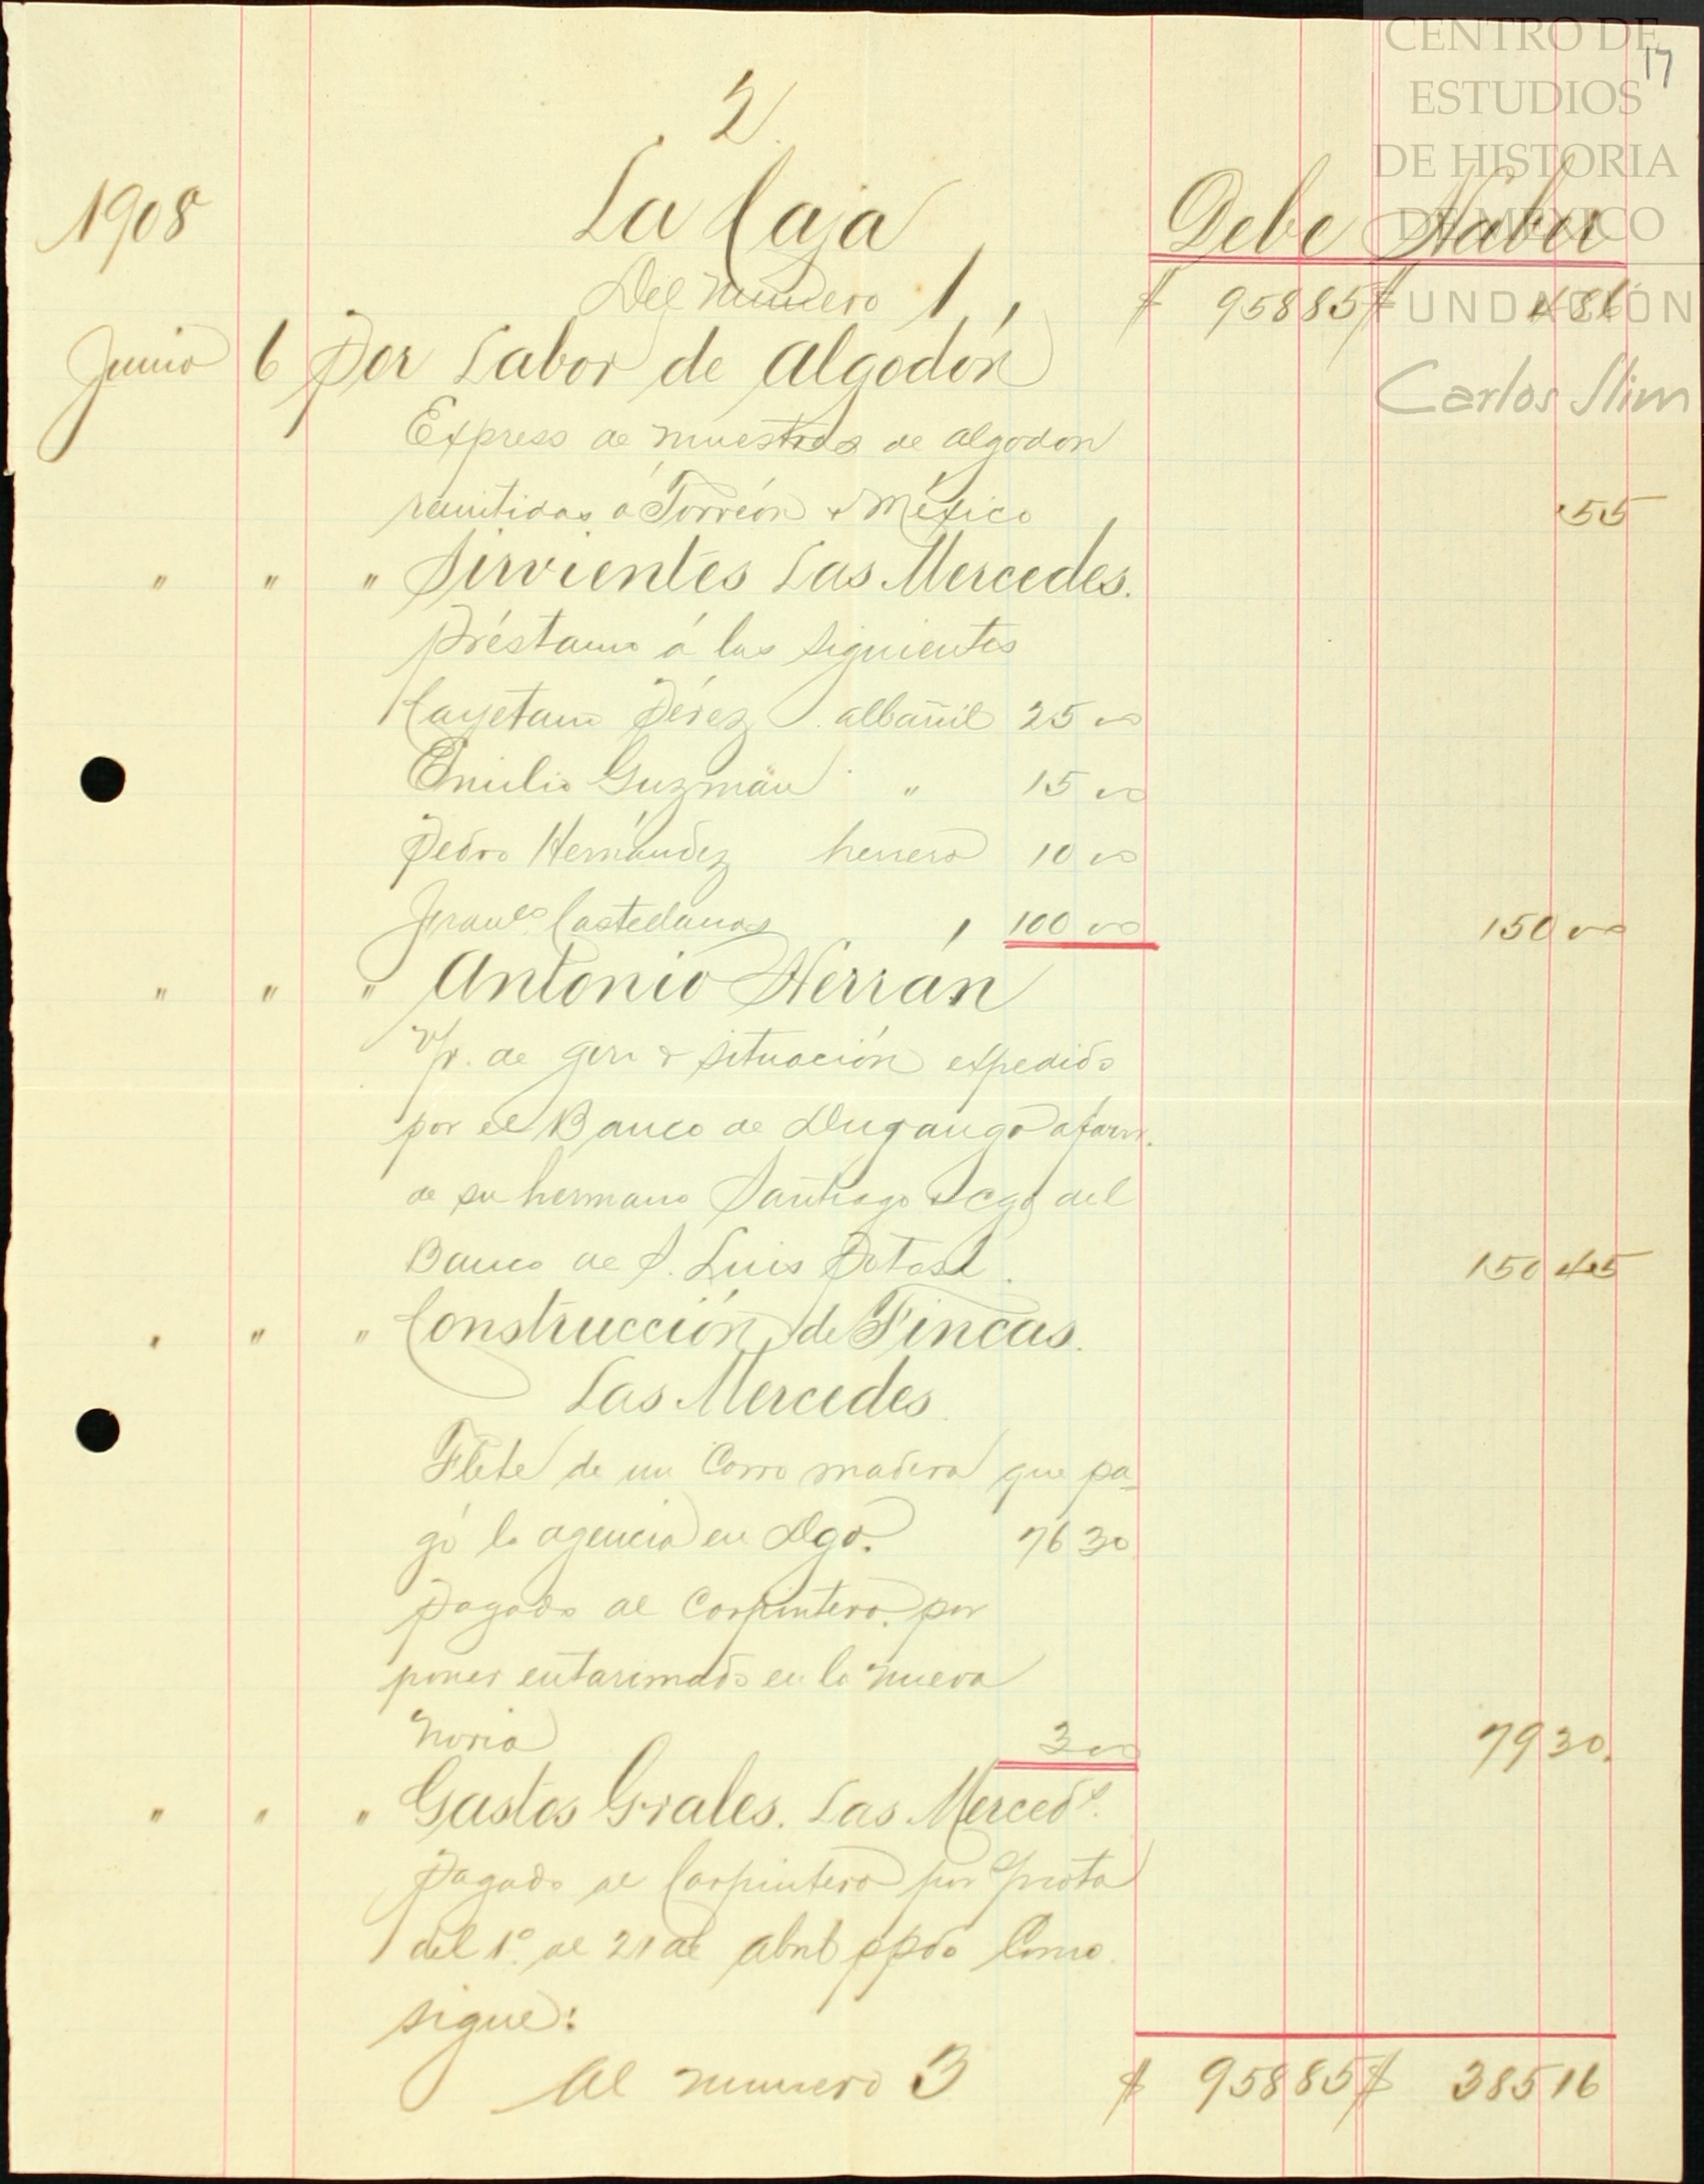 CENTRO DE
ESTUDIOS
DE HISTORIA
DE MÉXICO
FUNDACIÓN
Carlos Slim
17
2
1908 La Caja Debe Haber
Del número 1 $ 958 85 $ 4 86
Junio 6 Por Labor de Algodón
Express de muestras de algodon
remitidas á Torreón & México 55
" " " Sirvientes Las Mercedes.
Préstamo á los siguientes
Cayetano Pérez albañil 25 00
Emilio Guzmán " 15 00
Pedro Hernández herrero 10 00
Franco. Castellanos 100 00 150 00
" " " Antonio Herrán
V/r. de giro & situación expedido
por el Banco de Durango afavr.
de su hermano Santiago & cgo del
Banco de S. Luis Potosí. 150 45
" " " Construcción de Fincas.
Las Mercedes
Flete de un Carro madera que pa-
gó la agencia en Dgo. 76 30
Pagado al Carpintero por
poner entarimado en la nueva
Noria 3 00 79 30.
" " " Gastos Grales. Las Merceds.
Pagado al Carpintero por
del 1º al 21 de abril ppdo Como
sigue:
Al numero 3 $ 958 85 $ 385 16